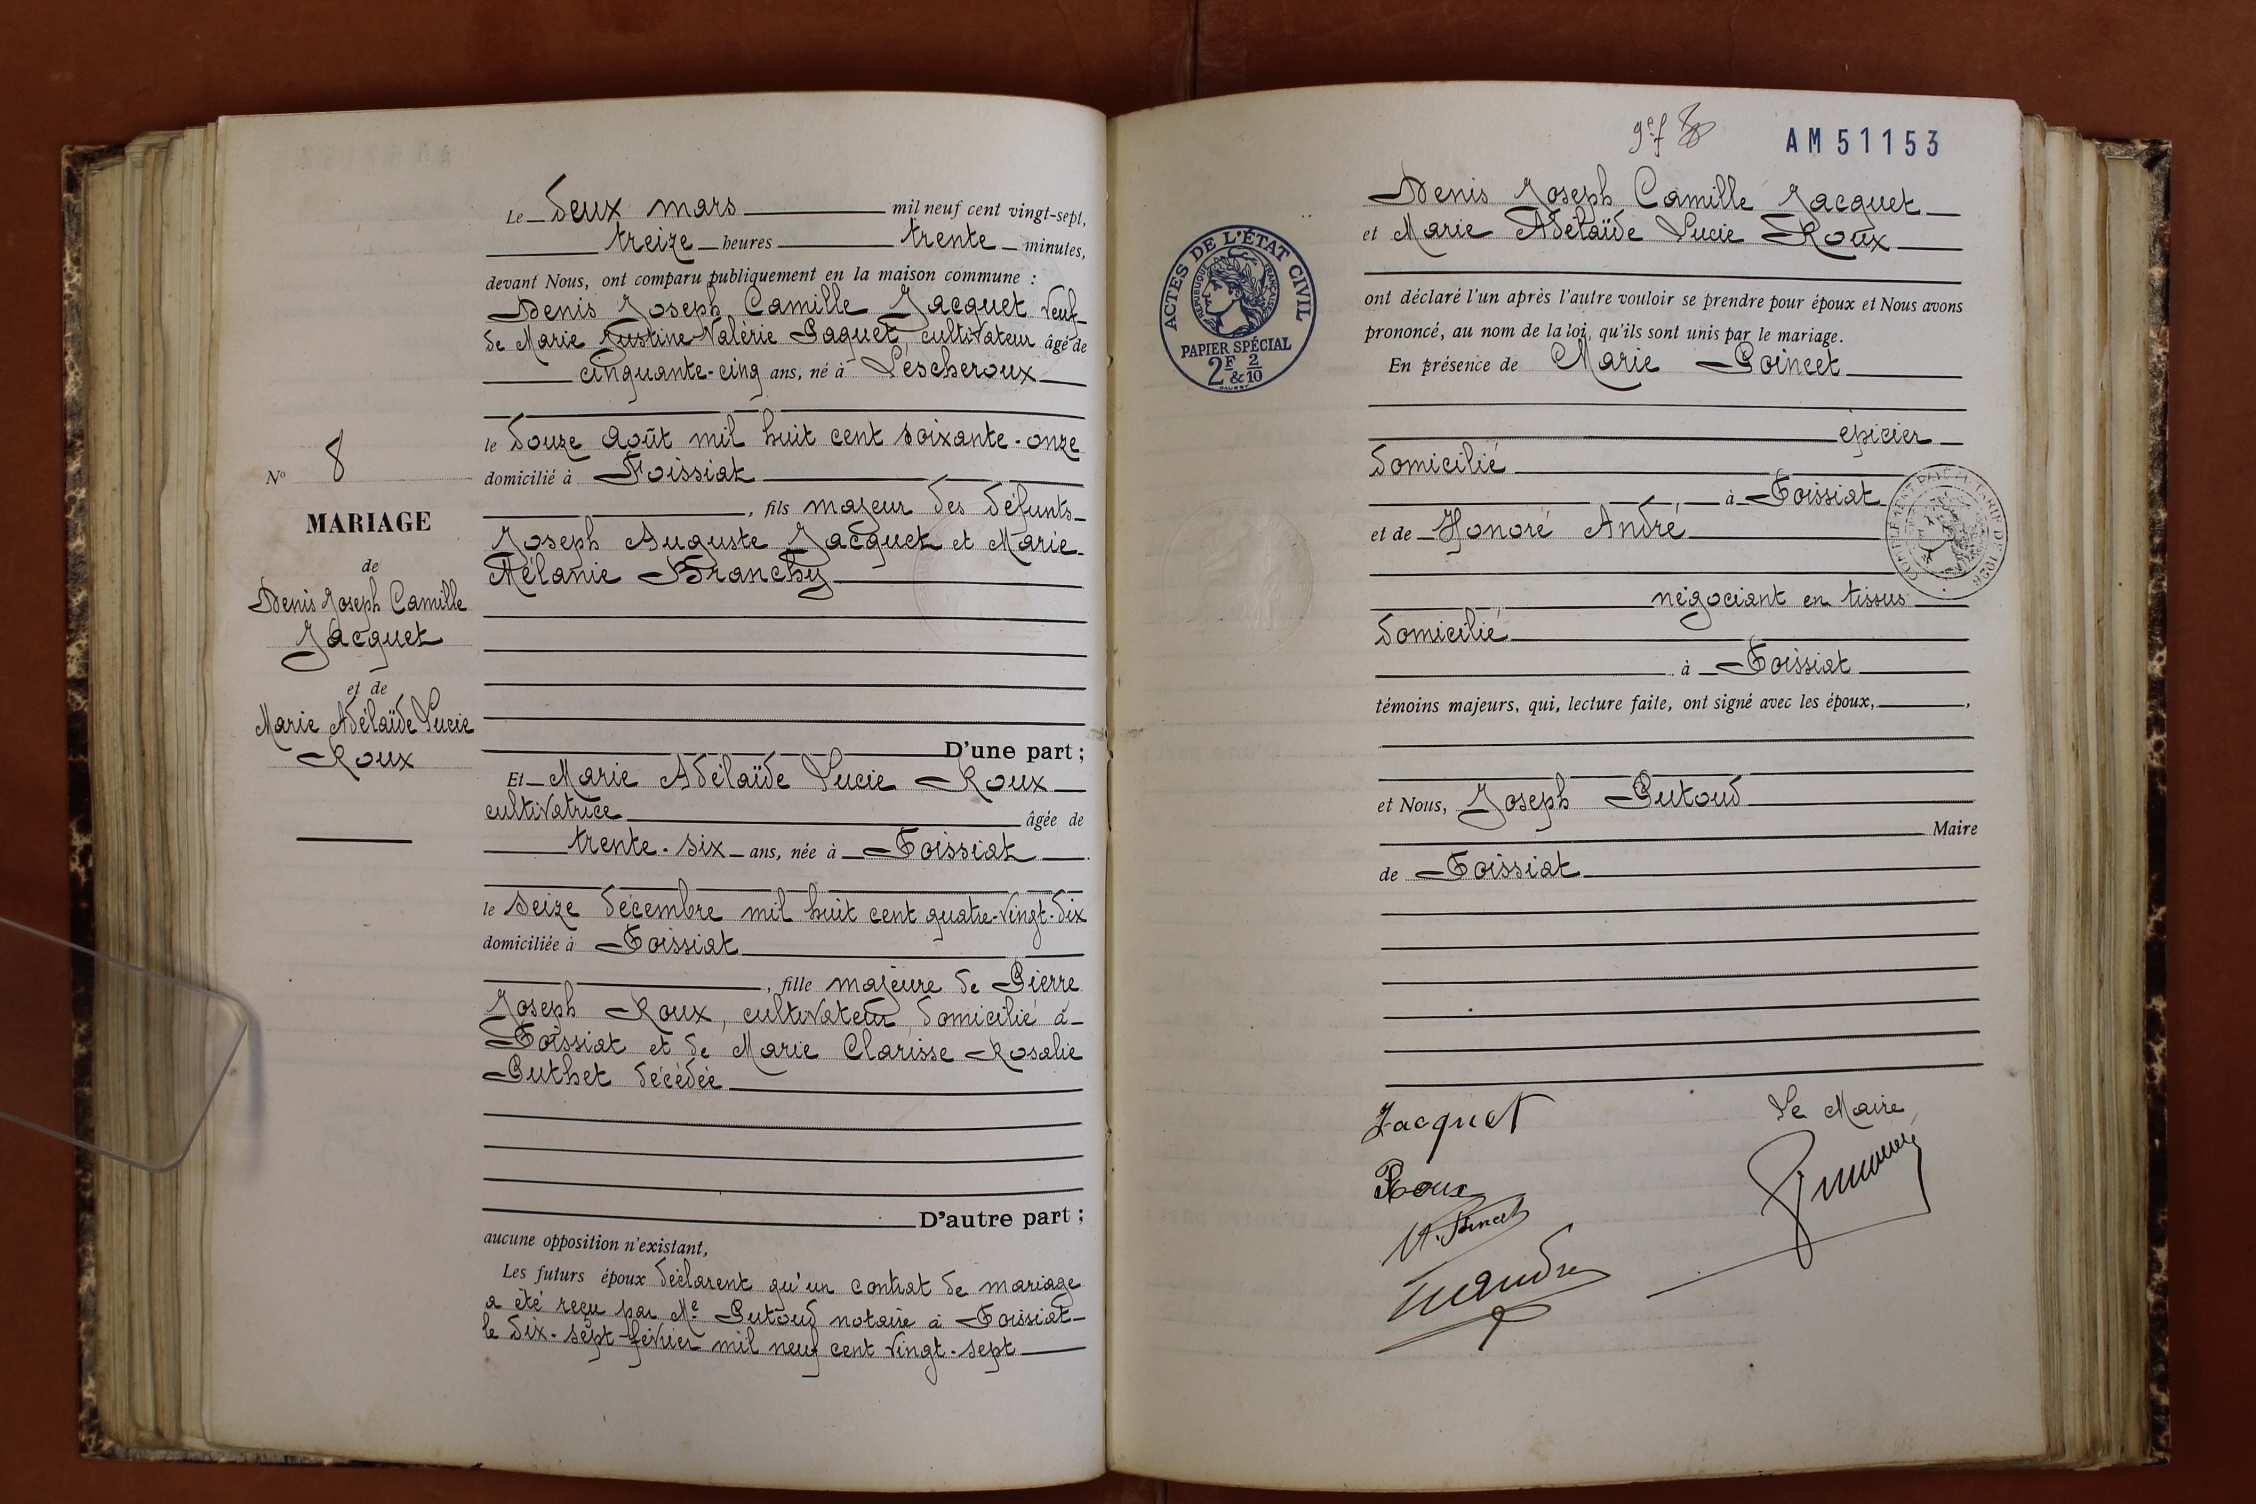 Le deux mars mil neuf cent vingt-sept,
treize heures trente minutes,
devant Nous, ont comparu publiquement en la maison commune :
Denis Joseph Camille Jacquet veuf
de Marie Justine Valérie Paquet, cultivateur âgé de
cinquante-cinq ans, né à Lescheroux
le douze août mil huit cent soixante-onze
domicilié à Foissiat
, fils majeur des défunts
Joseph Auguste Jacquet et Marie
Mélanie Franchy
D'une part ;
Et Marie Adélaïde Lucie Roux
cultivatrice âgée de
trente-six ans, née à Foissiat
le seize décembre mil huit cent quatre-vingt-dix
domiciliée à Foissiat
, fille majeure de Pierre
Joseph Roux, cultivateur, domicilié à
Foissiat et de Marie Clarisse Rosalie
Puthet décédée
D'autre part ;
aucune opposition n'existant,
Les futurs époux déclarent qu'un contrat de mariage
a été reçu par Me Putoud notaire à Foissiat
le dix-sept février mil neuf cent vingt-sept
No 8
MARIAGE
de
Denis Joseph Camille
Jacquet
et de
Marie Adélaïde Lucie
Roux
9e f 8
AM 51153
Denis Joseph Camille Jacquet
et Marie Adélaïde Lucie Roux
ont déclaré l'un après l'autre vouloir se prendre pour époux et Nous avons
prononcé, au nom de la loi, qu'ils sont unis par le mariage.
En présence de Marie Poincet
épicier
domicilié
à Foissiat
et de Honoré André
négociant en tissus
domicilié
à Foissiat
témoins majeurs, qui, lecture faite, ont signé avec les époux, ,
et Nous, Joseph Putoud
Maire
de Foissiat
Jacquet
Le Maire,
Roux
ACTES DE L'ÉTAT CIVIL
RÉPUBLIQUE FRANÇAISE
PAPIER SPÉCIAL
2F & 2/10